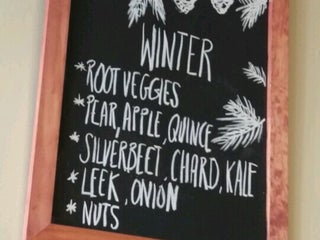 WINTER
*ROOT VEGGIES
*PEAR, APPLE, QUINCE
*SILVERBEET, CHARD, KALE
*LEEK, ONION
*NUTS